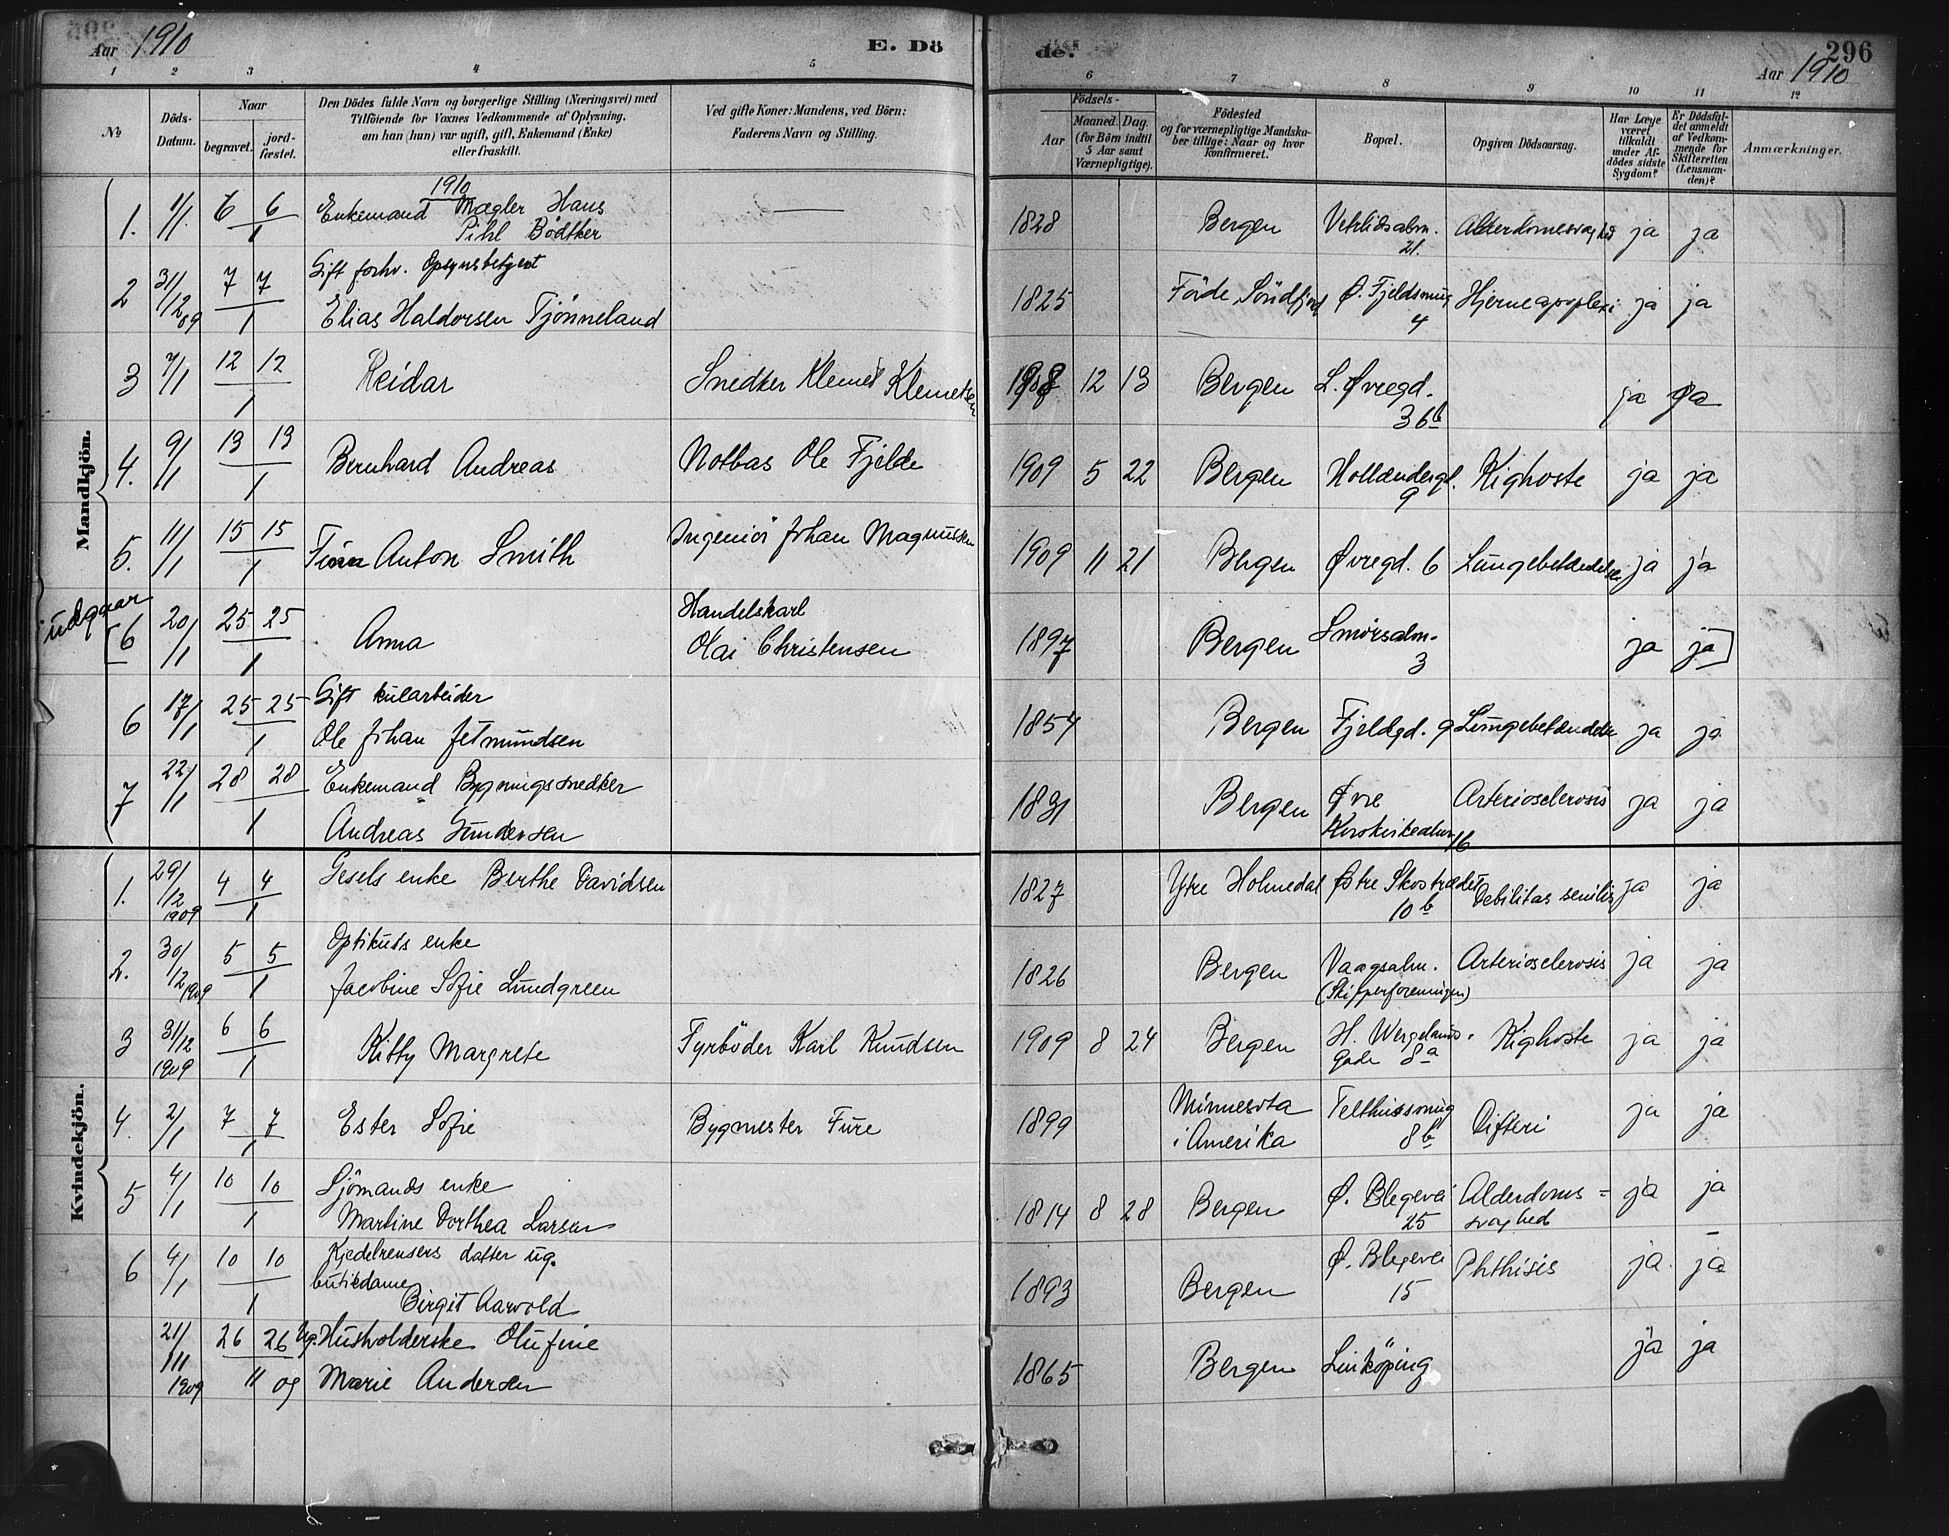 Aar 1910
E. Dö
de.
296
Aar 1910
1 2 3 4 5 6 7 8 9 10 11 12
No
Döds-Datum.
Naar begravet. jordfæstet.
Den Dödes fulde Navn og borgerlige Stilling (Næringsvei) med
Tilföiende for Voxnes Vedkommende af Oplysning,
om han (hun) var ugift, gift, Enkemand (Enke)
eller fraskilt.
Ved gifte Koner: Mandens, ved Börn:
Faderens Navn og Stilling.
Födsels-
Aar
Maaned. Dag.
(for Börn indtil
5 Aar samt
Værnepligtige).
Födested
og for værnepligtige Mandska-
ber tillige: Naar og hvor
konfirmeret.
Bopæl.
Opgiven Dödsaarsag.
Har Læge
været
tilkaldt
under Af-
dödes sidste
Sygdom?
Er Dödsfal-
det anmeldt
af Vedkom-
mende for
Skifteretten
(Lensman-
den)?
Anmærkninger.
Mandkjön.
1910
1. 1/1. 6 6/1 Enkemand Mægler Hans
Pihl Bödtker
1828 Bergen 21. Alderdomssvaghed ja ja
2 31/12 09 7 7/1 Gift forhv. Opsynsbetjent
Elias Haldorsen Tjönneland
1825 Förde Söndfjord Ø. Fjeldsmug 4 Hjerneapoplexi ja ja
3 7/1 12 12/1 Reidar Snedker Klemet Klemetsen
1908 12 13 Bergen L. Øvregd. 36b ja ja
4. 9/1 13 13/1 Bernhard Andreas Notbas Ole Fjelde
1909 5 22 Bergen Hollændergd. 9 Kighoste ja ja
5. 11/1 15 15/1 Finn Anton Smith Ingeniör Johan Magnussen
1909 11 21 Bergen Øvregd. 6 Lungebetændelse ja ja
udgaar
[6 20/1 25 25/1 Anna Handelskarl
Olai Christensen
1897 Bergen Smörsalm. 3 ja ja]
6 17/1 25 25/1 Gift kularbeider
Ole Johan Jetmundsen
1854 Bergen Fjeldgd. 9 Lungebetændelse ja ja
7 22/1 28 28/1 Enkemand Bygningssnedker
Andreas Gundersen
1831 Bergen Øvre
Korskirkealm. 16 Arteriosclerosis ja ja
Kvindekjön.
1. 29/12 1909 4 4/1 Gesels enke Berthe Davidsen
1827 Ytre Holmedal Østre Skostrædet 10b Debilitas senilis ja ja
2. 30/12 1909 5 5/1 Optikuss enke
Jacobine Sofie Lundgreen
1826 Bergen Vaagsalm.
(Skipperforeningen) Arteriosclerosis ja ja
3 31/12 1909 6 6/1 Kitty Margrete Fyrböder Karl Knudsen
1909 8 24 Bergen H. Wergelands-
gade 8a Kighoste ja ja
4. 2/1 7 7/1 Ester Sofie Bygmester Fure
1899 Minnesota
i Amerika Telthussmug 8b Difteri ja ja
5 4/1 10 10/1 Sjömands enke
Martine Dorthea Larsen
1814 8 28 Bergen Ø. Blegevei 25 Alderdoms=
svaghed ja ja
6 4/1 10 10/1 Kjedelrensers datter ug.
butikdame
Birgit Aarvold
1893 Bergen Ø. Blegevei 15 Phthisis ja ja
21/111 1909 26 26/11 09 Ug. Husholderske Olufine
Marie Andersen
1865 Bergen Linköping ja ja